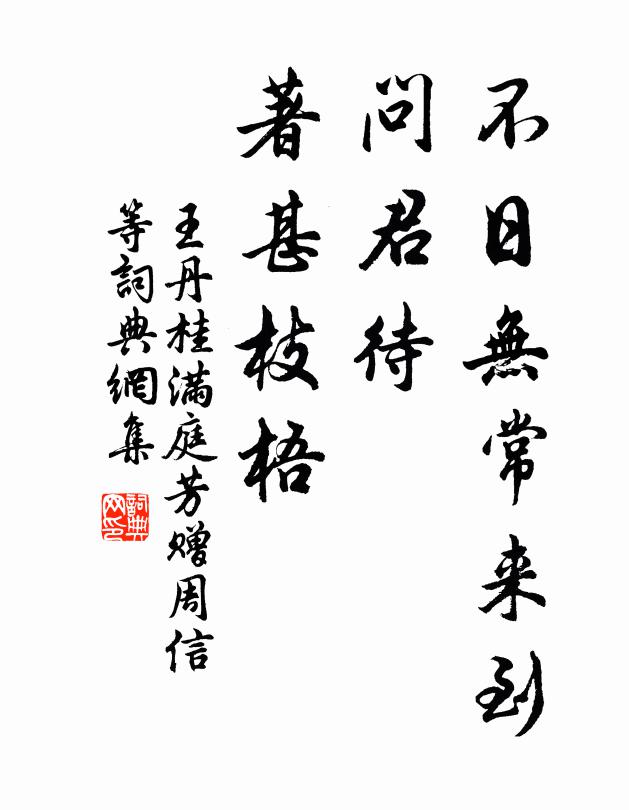 不日無常来到
問君待
著甚枝梧
王丹桂滿庭芳贈周信
等詞典網集
詞典网印